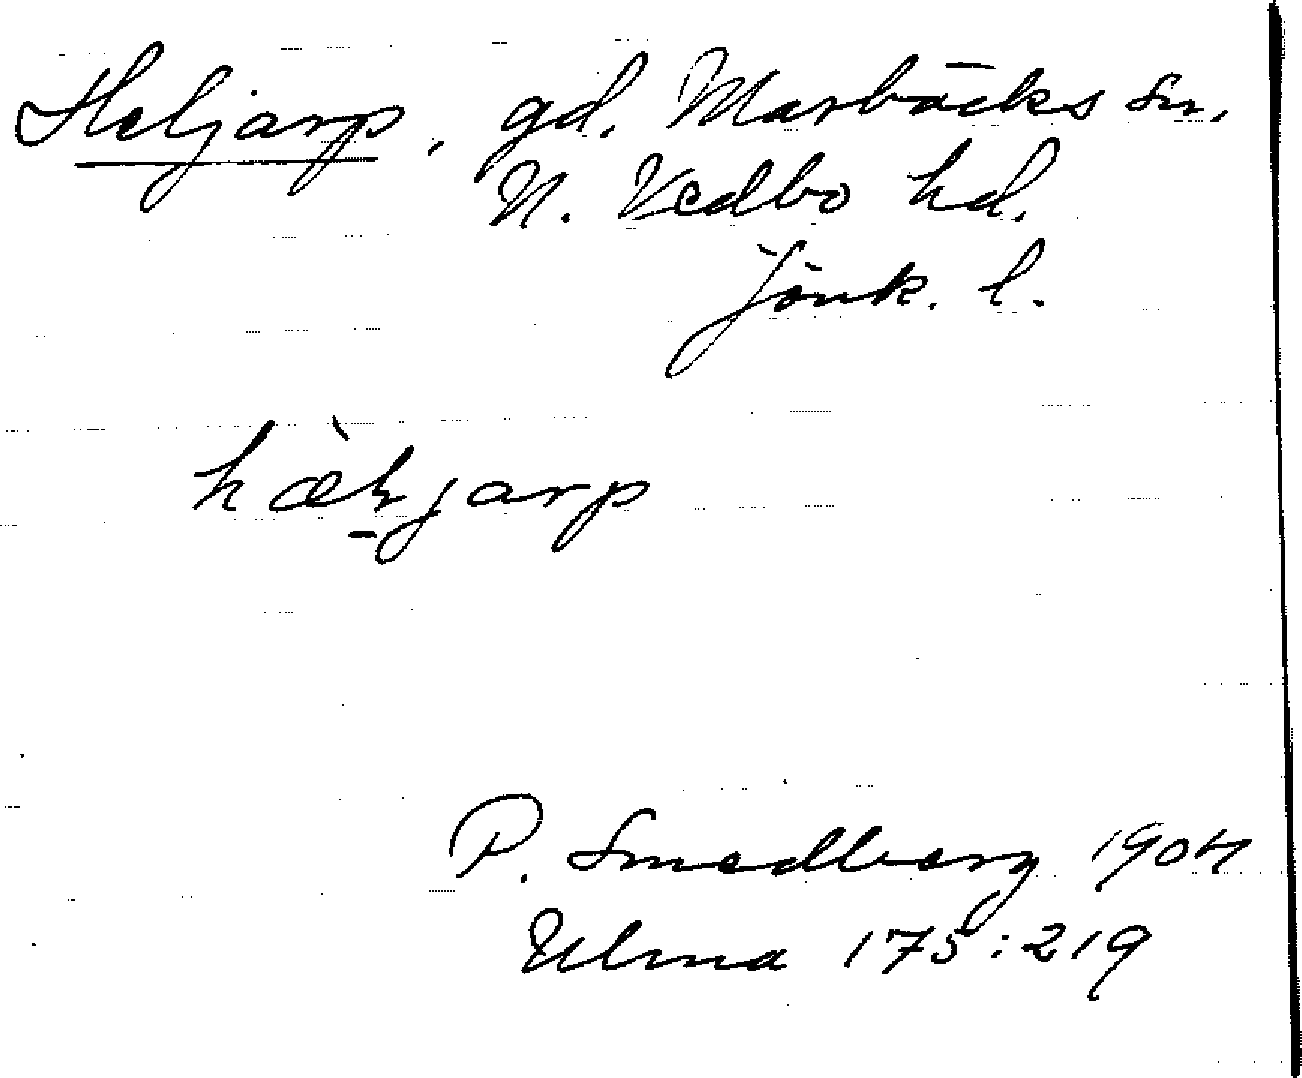 Heljarp, gd. Marbäcks sn,
N. Vedbo hd.
Jönk. l.
P. Smedberg 1904
Ulma 175:219